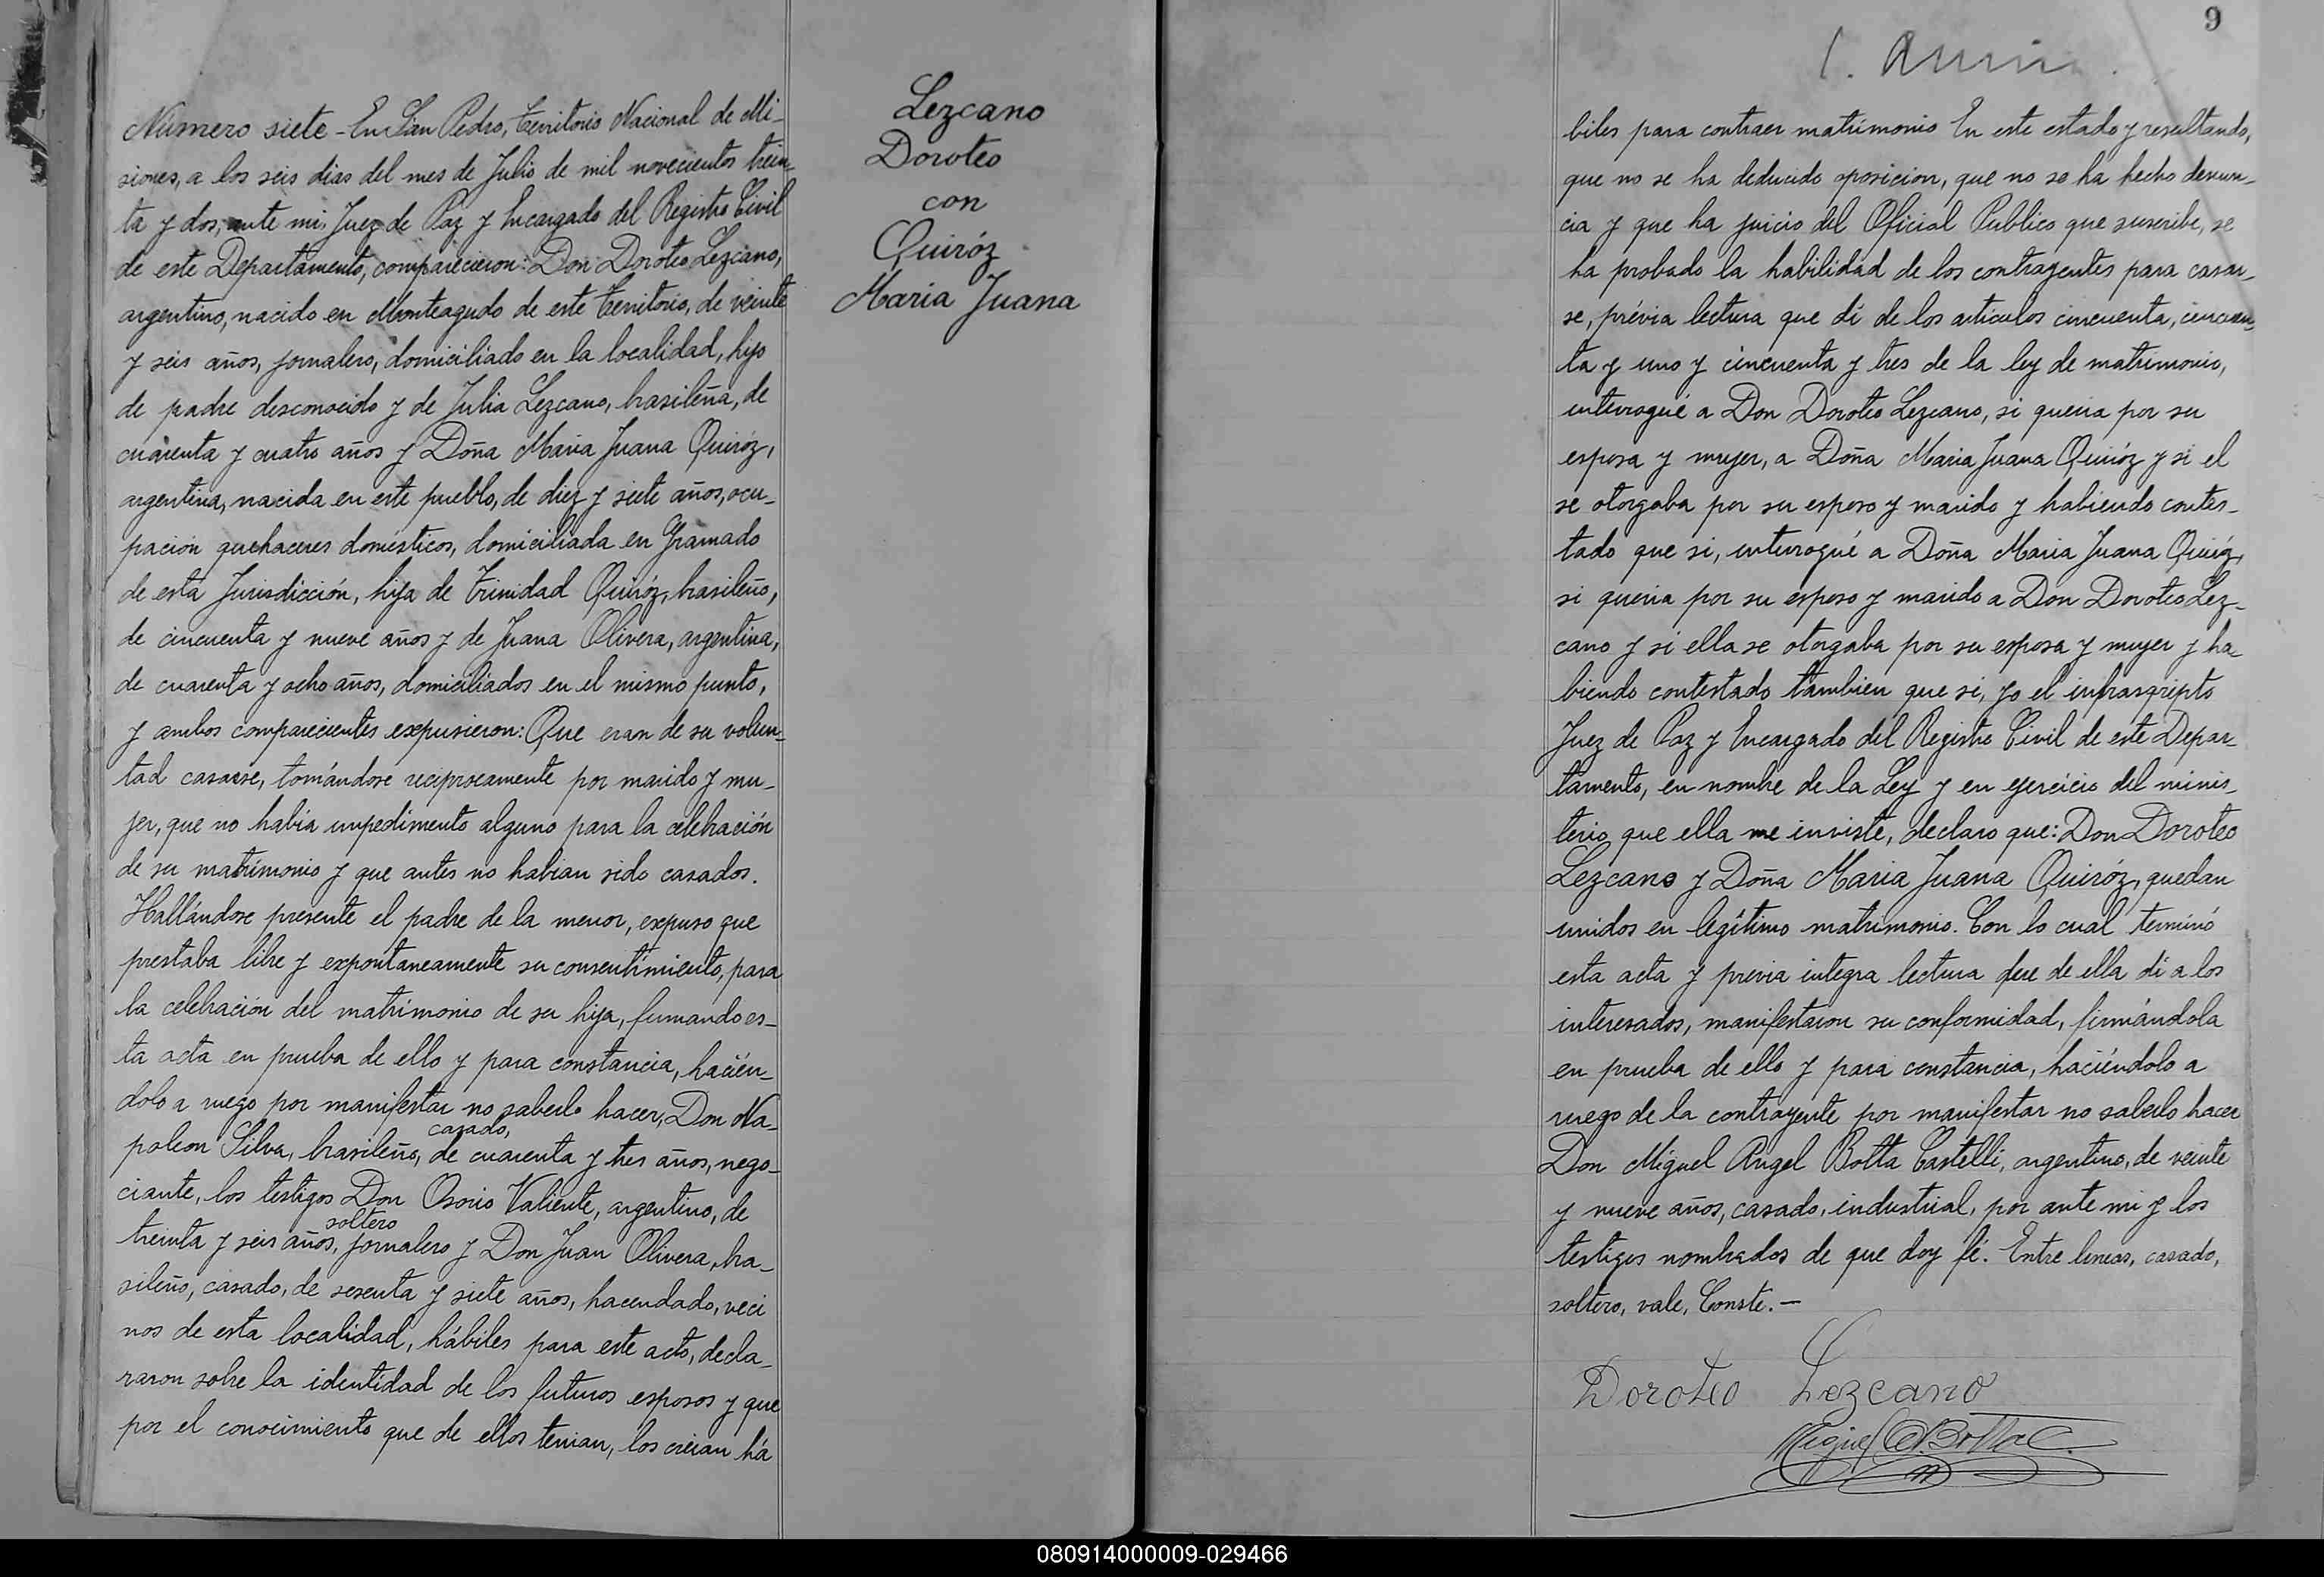 Número siete - En San Pedro, Territorio Nacional de Mi-
siones, a los seis dias del mes de Julio de mil novecientos trein-
ta y dos, ante mi, Juez de Paz y Encargado del Registro Civil
de este Departamento, comparecieron: Don Doroteo Lezcano,
argentino, nacido en Monteagudo de este Territorio, de veinte
y seis años, jornalero, domiciliado en la localidad, hijo
de padre desconocido y de Julia Lezcano, brasileña, de
cuarenta y cuatro años y Doña Maria Juana Quiróz,
argentina, nacida en este pueblo, de diez y siete años, ocu-
pación quehaceres domésticos, domiciliada en Gramado
de esta Jurisdicción, hija de Trinidad Quiróz, brasileño,
de cincuenta y nueve años y de Juana Olivera, argentina,
de cuarenta y ocho años, domiciliados en el mismo punto,
y ambos comparecientes expusieron: Que eran de su volun-
tad casarse, tomándose reciprocamente por marido y mu-
jer, que no habia impedimento alguno para la celebración
de su matrimonio y que antes no habian sido casados.
Hallándose presente el padre de la menor, expuso que
prestaba libre y expontaneamente su consentimiento, para
la celebración del matrimonio de su hija, firmando es-
ta acta en prueba de ello y para constancia, hacién-
dolo a ruego por manifestar no saberlo hacer, Don Na-
casado,
poleon Silva, brasileño, de cuarenta y tres años, nego-
ciante, los testigos Don Osorio Valiente, argentino, de
soltero
treinta y seis años, jornalero y Don Juan Olivera, bra-
sileño, casado, de sesenta y siete años, hacendado, veci
nos de esta localidad, hábiles para este acto, decla-
raron sobre la identidad de los futuros esposos y que
por el conocimiento que de ellos tenian, los creian há
Lezcano
Doroteo
con
Quiróz
Maria Juana
9
biles para contraer matrimonio En este estado y resultando,
que no se ha deducido oposicion, que no se ha hecho denun-
cia y que ha juicio del Oficial Publico que suscribe, se
ha probado la habilidad de los contrayentes para casar-
se, prévia lectura que di de los articulos cincuenta, cincuen-
ta y uno y cincuenta y tres de la ley de matrimonio,
interrogué a Don Doroteo Lezcano, si queria por su
esposa y mujer, a Doña Maria Juana Quiróz y si el
se otorgaba por su esposo y marido y habiendo contes-
tado que si, interrogué a Doña Maria Juana Quiróz,
si queria por su esposo y marido a Don Doroteo Lez-
cano y si ella se otorgaba por su esposa y mujer y ha
biendo contestado tambien que si, yo el infrasgripto
Juez de Paz y Encargado del Registro Civil de este Depar-
tamento, en nombre de la Ley y en ejercicio del minis-
terio que ella me inviste, declaro que: Don Doroteo
Lezcano y Doña Maria Juana Quiróz, quedan
unidos en legítimo matrimonio. Con lo cual terminó
esta acta y previa integra lectura que de ella di a los
interesados, manifestaron su conformidad, firmándola
en prueba de ello y para constancia, haciéndolo a
ruego de la contrayente por manifestar no saberlo hacer
Don Miguel Angel Botta Castelli, argentino, de veinte
y nueve años, casado, industrial, por ante mi y los
testigos nombrados de que doy fé. Entre lineas, casado,
soltero, vale, Conste.-
Doroteo Lezcano
Miguel A. Botta C.
080914000009-029466